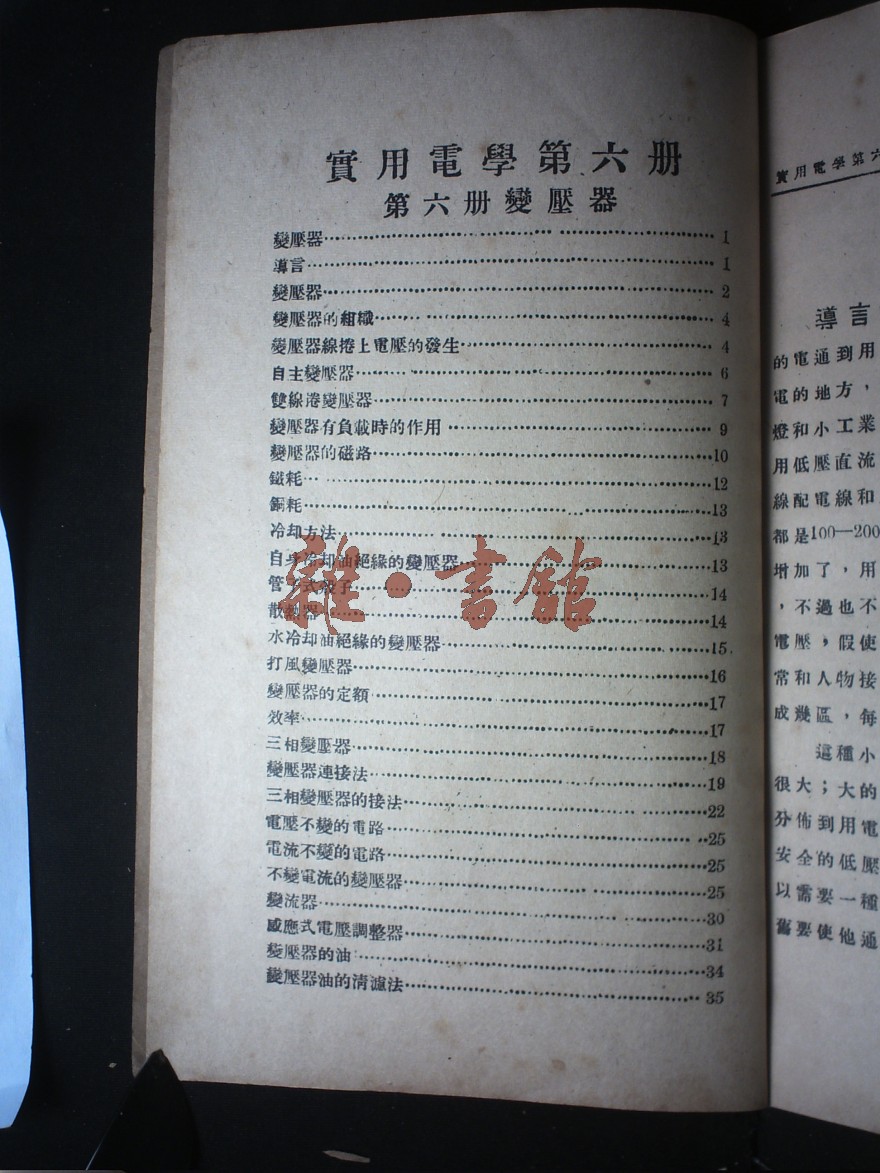 實用電學第六册
第六册變壓器
變壓器 1
導言 1
變壓器 2
變壓器的組織 4
變壓器線捲上電壓的發生 4
自主變壓器 6
雙線捲變壓器 7
變壓器有負載時的作用 9
變壓器的磁路 10
鐵耗 12
銅耗 13
冷却方法 13
自身冷却油絕緣的變壓器 13
管 式 子 14
散熱器 14
水冷却油絕緣的變壓器 15
打風變壓器 16
變壓器的定額 17
效率 17
三相變壓器 18
變壓器連接法 19
三相變壓器的接法 22
電壓不變的電路 25
電流不變的電路 25
不變電流的變壓器 25
變流器 30
感應式電壓調整器 31
變壓器的油 34
變壓器油的清濾法 35
雜·書館
實用電學第六
導言
的電通到用
電的地方，
燈和小工業
用低壓直流
線配電線和
都是100—200
增加了，用
，不過也不
電壓，假使
常和人物接
成幾區，每
這種小
很大；大的
分佈到用電
安全的低壓
以需要一種
舊要使他通